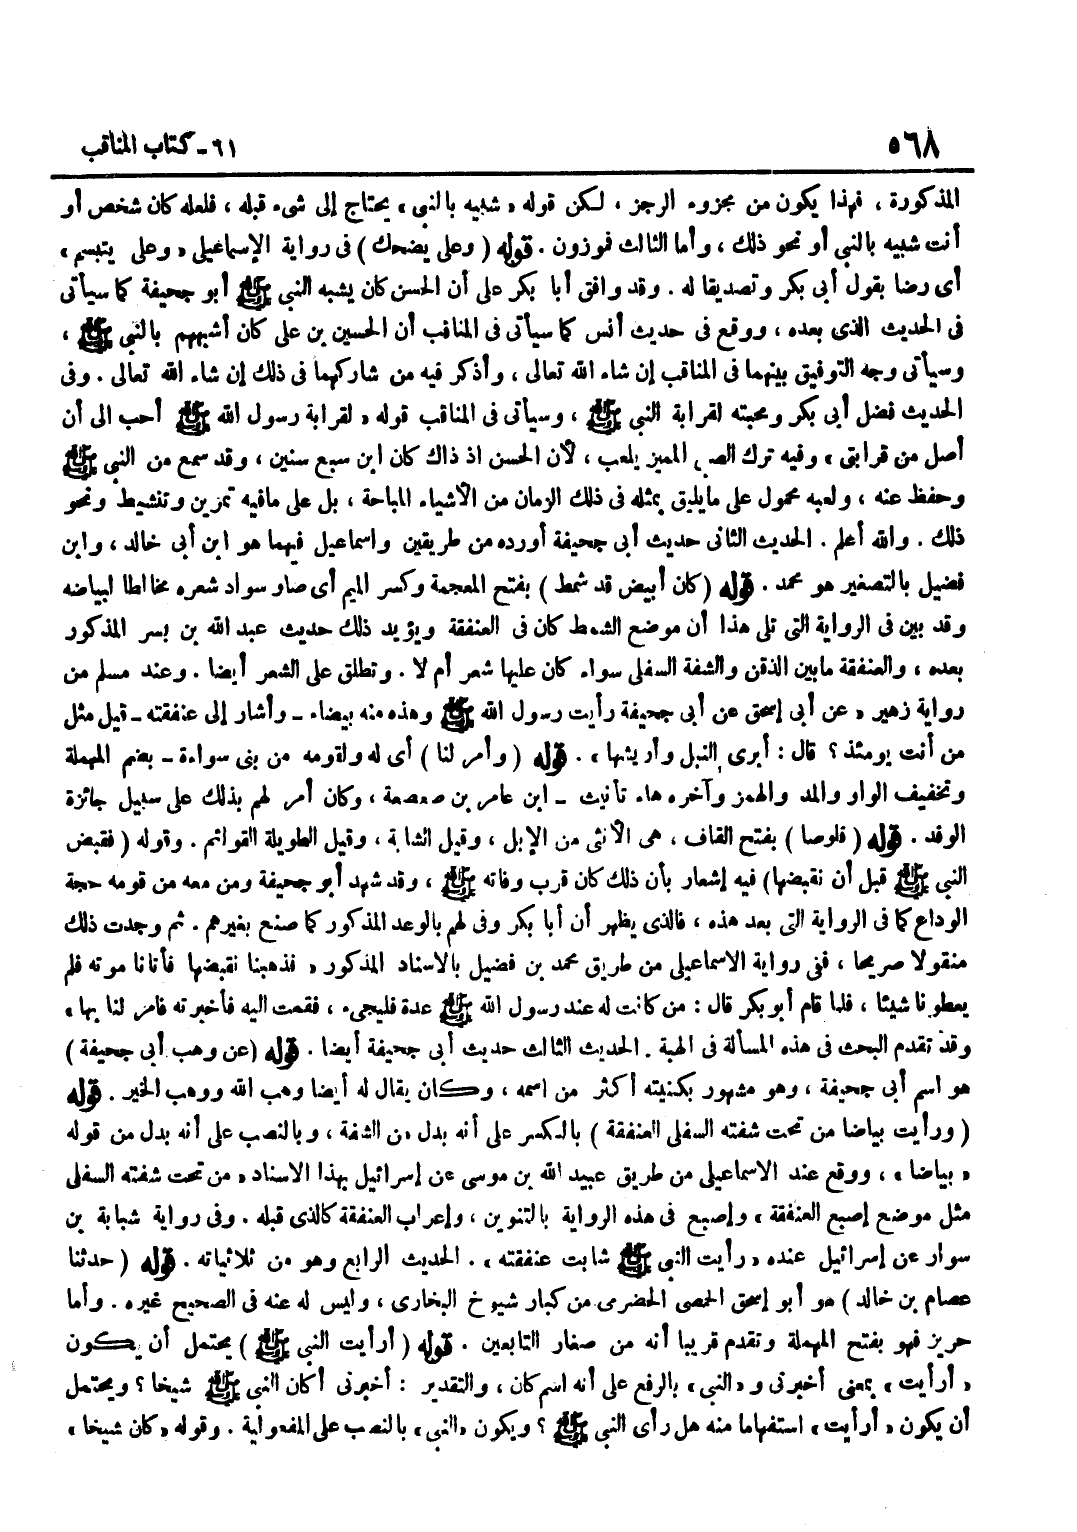 ٥٦٨
٦١ - كتاب المناقب
المذكورة ، فهذا يكون من مجزوء الرجز ، لكن قوله « شبيه بالنبي » يحتاج إلى شىء قبله ، فلعله كان شخص أو
أنت شبيه بالنبي أو نحو ذلك ، وأما الثالث فموزون . قوله ( وعلى يضحك ) فى رواية الإسماعيلى « وعلى يتبسم »
أى رضا بقول أبى بكر وتصديقا له . وقد وافق أبا بكر على أن الحسن كان يشبه النبي ﷺ أبو جحيفة كما سيأتى
فى الحديث الذى بعده ، ووقع فى حديث أنس كما سيأتى فى المناقب أن الحسين بن على كان أشبههم بالنبي ﷺ ،
وسيأتى وجه التوفيق بينهما فى المناقب إن شاء الله تعالى ، وأذكر فيه من شاركهما فى ذلك إن شاء الله تعالى . وفى
الحديث فضل أبى بكر ومحبته لقرابة النبي ﷺ ، وسيأتى فى المناقب قوله « لقرابة رسول الله ﷺ أحب الى أن
أصل من قرابتى » وفيه ترك الصبي المميز يلعب ، لأن الحسن اذ ذاك كان ابن سبع سنين ، وقد سمع من النبي ﷺ
وحفظ عنه ، ولعبه محمول على ما يليق بمثله فى ذلك الزمان من الأشياء المباحة ، بل على مافيه تمرين وتنشيط ونحو
ذلك . والله أعلم . الحديث الثانى حديث أبى جحيفة أورده من طريقين واسماعيل فيهما هو ابن أبى خالد ، وابن
فضيل بالتصغير هو محمد . قوله ( كان أبيض قد شمط ) بفتح المعجمة وكسر الميم أى صار سواد شعره مخالطا لبياضه
وقد بين فى الرواية التى تلى هذا أن موضع الشمط كان فى العنفقة ويؤيد ذلك حديث عبد الله بن بسر المذكور
بعده ، والعنفقة مابين الذقن والشفة السفلى سواء كان عليها شعر أم لا . وتطلق على الشعر أيضا . وعند مسلم من
رواية زهير « عن أبى إسحق عن أبى جحيفة رأيت رسول الله ﷺ وهذه منه بيضاء - وأشار إلى عنفقته - قيل مثل
من أنت يومئذ ؟ قال : أبرى النبل وأريشها » . قوله ( وأمر لنا ) أى له ولقومه من بنى سواءة - بضم المهملة
وتخفيف الواو والمد والهمز وآخره هاء تأنيث - ابن عامر بن صعصعة ، وكان أمر لهم بذلك على سبيل جائزة
الوفد . قوله ( قلوصا ) بفتح القاف ، هى الأنثى من الإبل ، وقيل الشابة ، وقيل الطويلة القوائم . وقوله ( فقبض
النبي ﷺ قبل أن نقبضها ) فيه إشعار بأن ذلك كان قرب وفاته ﷺ ، وقد شهد أبو جحيفة ومن معه من قومه حجة
الوداع كما فى الرواية التى بعد هذه ، فالذى يظهر أن أبا بكر وفى لهم بالوعد المذكور كما صنع بغيرهم . ثم وجدت ذلك
منقولا صريحا ، ففى رواية الاسماعيلى من طريق محمد بن فضيل بالاسناد المذكور « فذهبنا نقبضها فأتانا موته فلم
يعطونا شيئا ، فلما قام أبو بكر قال : من كانت له عند رسول الله ﷺ عدة فليجىء ، فقمت اليه فأخبرته فأمر لنا بها »
وقد تقدم البحث فى هذه المسألة فى الهبة . الحديث الثالث حديث أبى جحيفة أيضا . قوله ( عن وهب أبى جحيفة )
هو اسم أبى جحيفة ، وهو مشهور بكنيته أكثر من اسمه ، وكان يقال له أيضا وهب الله ووهب الخير . قوله
( ورأيت بياضا من تحت شفته السفلى العنفقة ) بالكسر على أنه بدل من الشفة ، وبالنصب على أنه بدل من قوله
« بياضا » ، ووقع عند الاسماعيلى من طريق عبيد الله بن موسى عن إسرائيل بهذا الاسناد « من تحت شفته السفلى
مثل موضع إصبع العنفقة » وإصبع فى هذه الرواية بالتنوين ، وإعراب العنفقة كالذى قبله . وفى رواية شبابة بن
سوار عن إسرائيل عنده « رأيت النبي ﷺ شابت عنفقته » . الحديث الرابع وهو من ثلاثياته . قوله ( حدثنا
عصام بن خالد ) هو أبو إسحق الحمصى الحضرمى من كبار شيوخ البخارى ، وليس له عنه فى الصحيح غيره . وأما
حريز فهو بفتح المهملة وتقدم قريبا أنه من صغار التابعين . قوله ( أرأيت النبي ﷺ ) يحتمل أن يكون
« أرأيت » بمعنى أخبرنى و « النبي » بالرفع على أنه اسم كان ، والتقدير : أخبرنى أكان النبي ﷺ شيخا ؟ ويحتمل
أن يكون « أرأيت » استفهاما منه هل رأى النبي ﷺ ؟ ويكون « النبي » بالنصب على المفعولية . وقوله « كان شيخا »